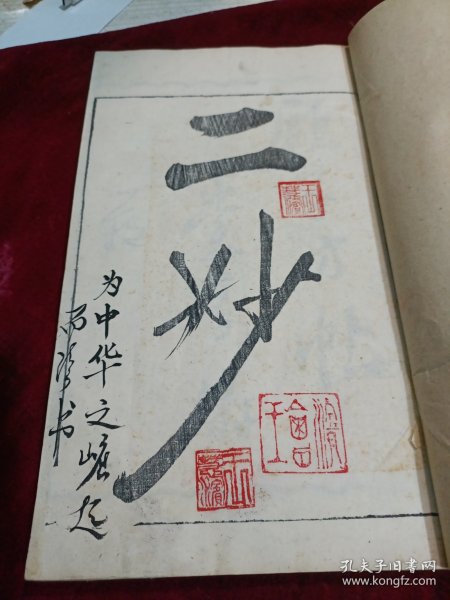 二妙
为中华之崛起
而读书
孔夫子旧书网
www.kongfz.com